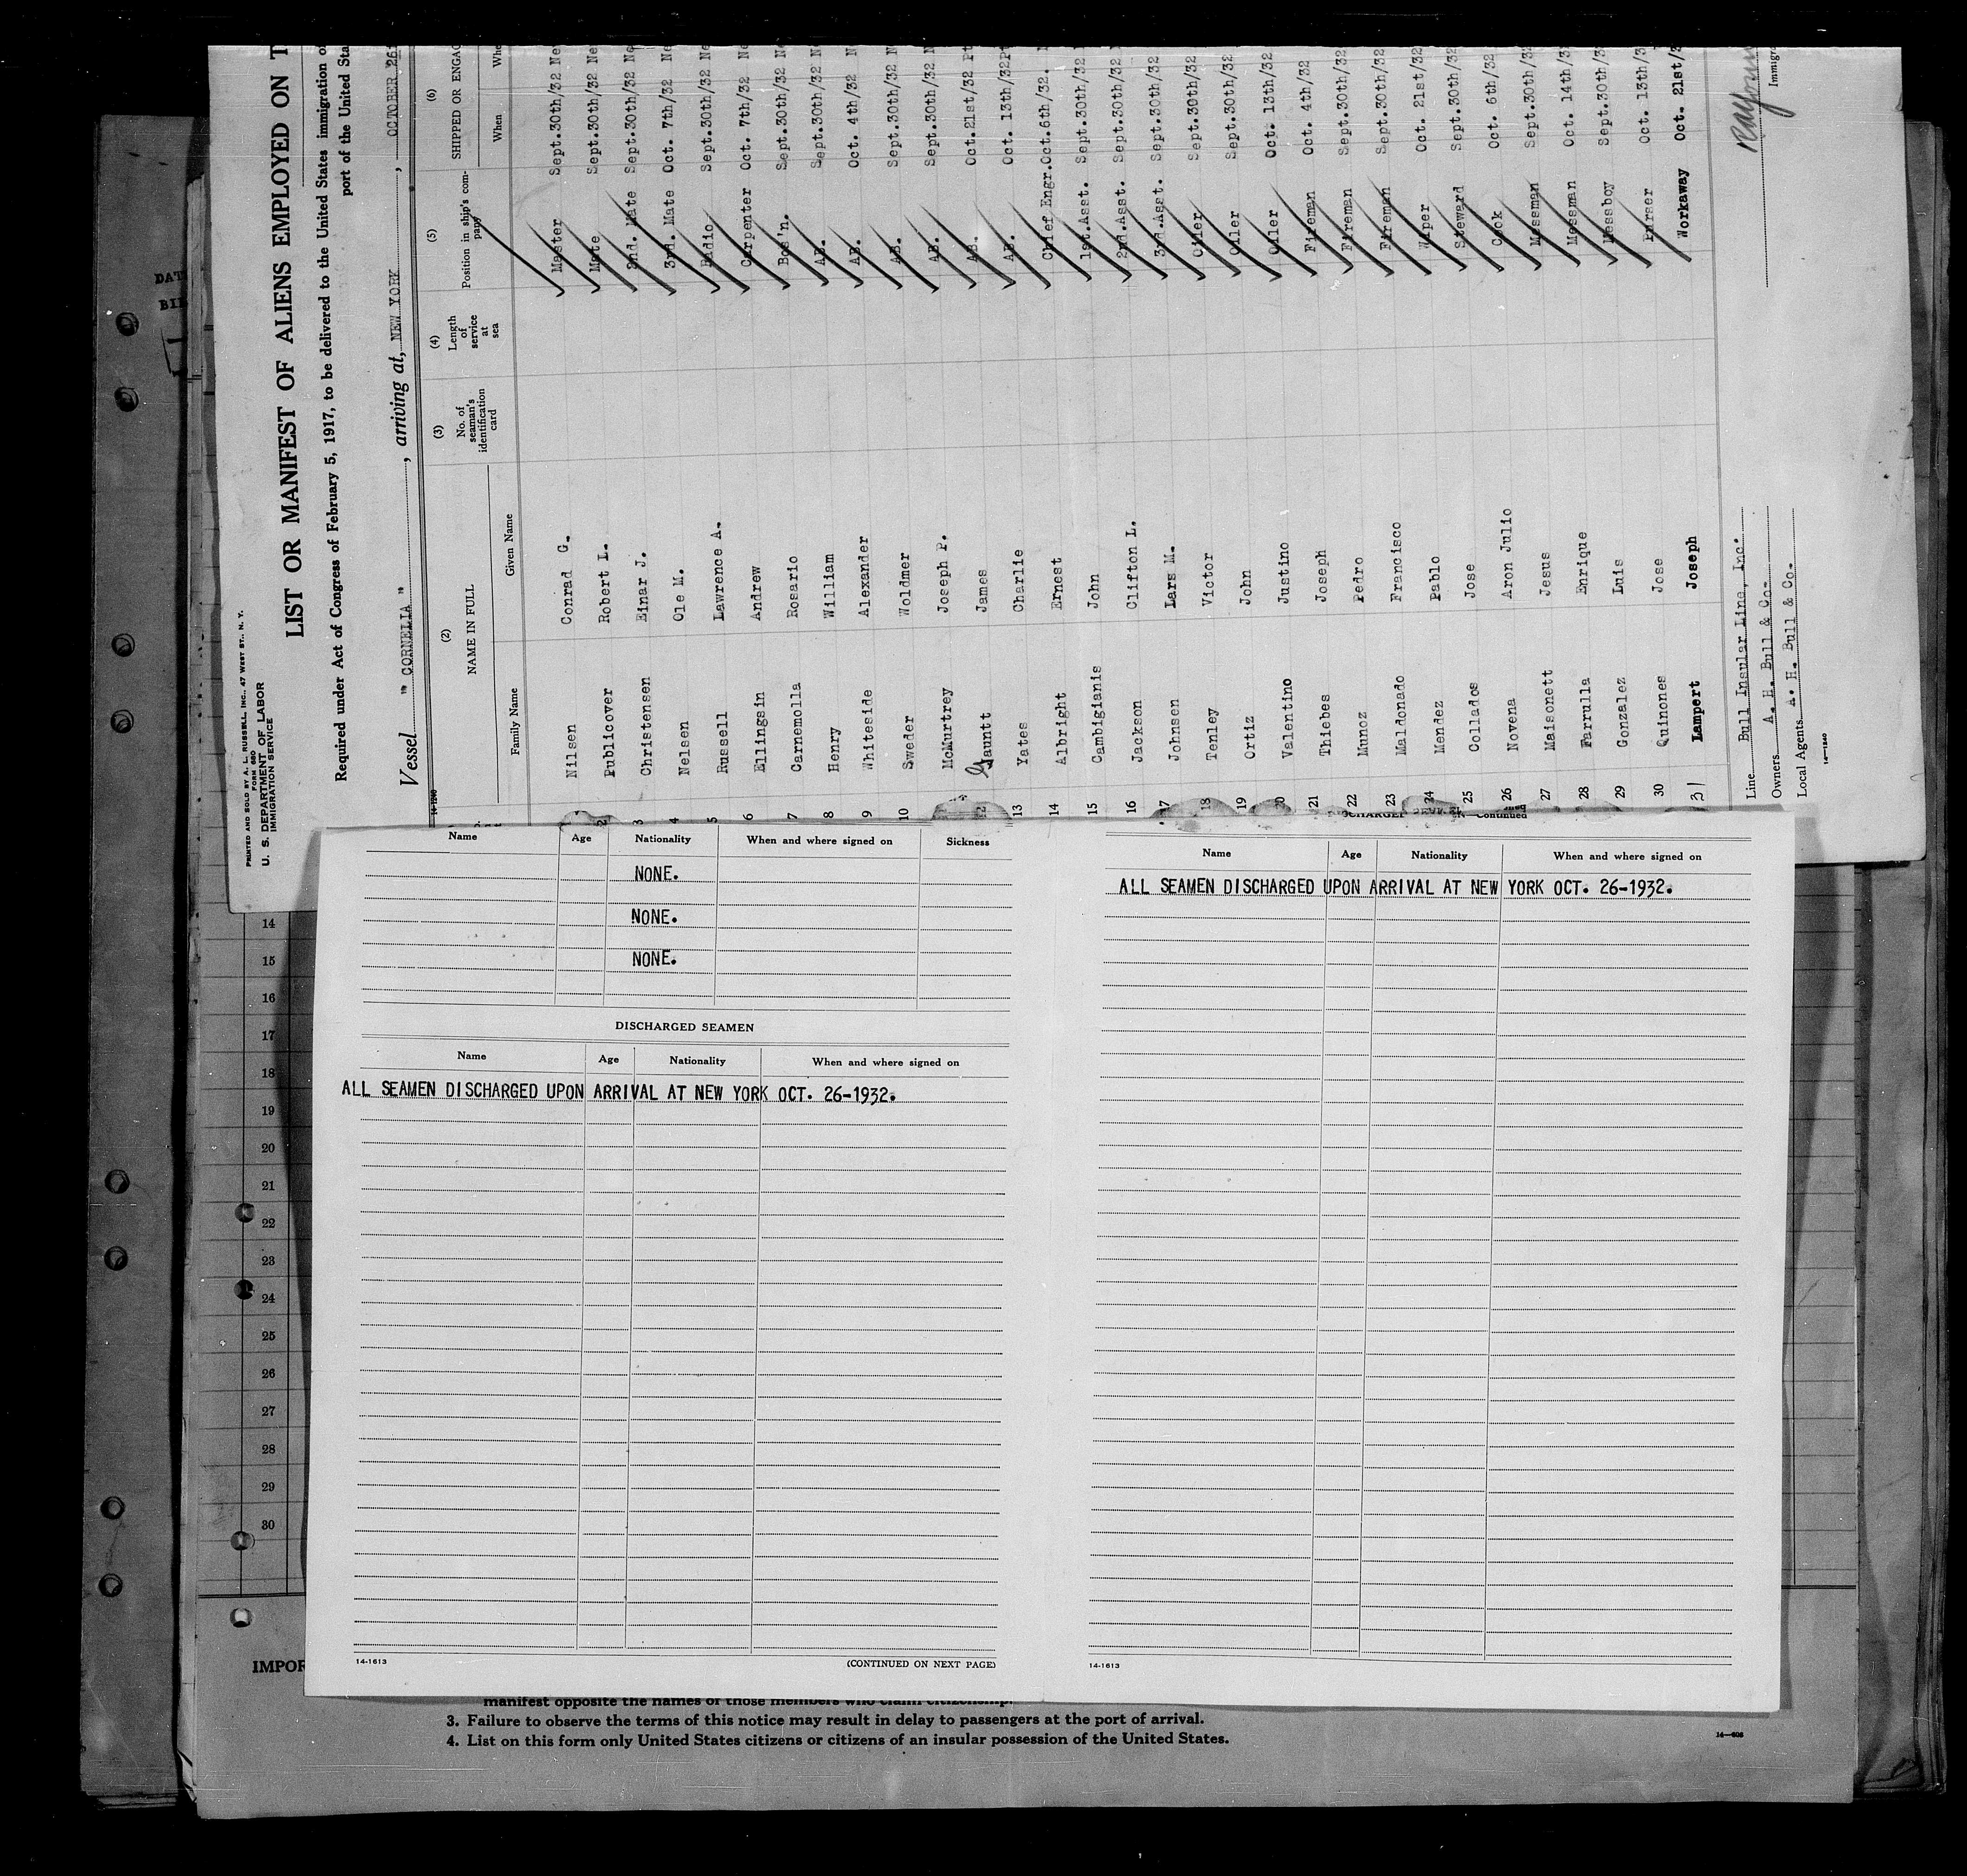 PRINTED AND SOLD BY A. L. RUSSELL, INC., 47 WEST ST., N. Y.
FORM 680
U. S. DEPARTMENT OF LABOR
IMMIGRATION SERVICE
LIST OR MANIFEST OF ALIENS EMPLOYED ON T
Required under Act of Congress of February 5, 1917, to be delivered to the United States immigration of
port of the United Sta
Vessel " CORNELIA " , arriving at, NEW YORK , OCTOBER 26
14-1240
(2) (3) (4) (5) (6)
NAME IN FULL No. of seaman's identification card Length of service at sea Position in ship's company SHIPPED OR ENGAG
Family Name Given Name When Whe
Nilsen Conrad G. Master Sept.30th/32 Ne
2 Publicover Robert L. Mate Sept.30th/32 Ne
3 Christensen Einar J. 2nd. Mate Sept.30th/32 Ne
4 Nelsen Ole M. 3rd. Mate Oct. 7th/32 Ne
5 Russell Lawrence A. Radio Sept.30th/32 Ne
6 Ellingsin Andrew Carpenter Oct. 7th/32 Ne
7 Carnemolla Rosario Bos'n. Sept.30th/32 Ne
8 Henry William AB. Sept.30th/32 N
9 Whiteside Alexander AB. Oct. 4th/32 N
10 Sweder Woldmer AB. Sept.30th/32 N
McMurtrey Joseph P. AB. Sept.30th/32 N
12 Gauntt James AB. Oct.21st/32 Pt
13 Yates Charlie AB. Oct. 13th/32Pt
14 Albright Ernest Chief Engr. Oct.6th/32.
15 Cambigianis John 1st.Asst. Sept.30th/32
16 Jackson Clifton L. 2nd.Asst. Sept.30th/32
17 Johnsen Lars M. 3rd.Asst. Sept.30th/32
18 Tenley Victor Oiler Sept.30th/32
19 Ortiz John Oiler Sept.30th/32
20 Valentino Justino Oiler Oct. 13th/32
21 Thiebes Joseph Fireman Oct. 4th/32
22 Munoz Pedro Fireman Sept.30th/32
23 Maldonado Francisco Fireman Sept.30th/32
24 Mendez Pablo Wiper Oct. 21st/32
25 Collados Jose Steward Sept.30th/32
26 Novena Aron Julio Cook Oct. 6th/32
27 Maisonett Jesus Messman Sept.30th/32
28 Farrulla Enrique Messman Oct. 14th/3
29 Gonzalez Luis Messboy Sept.30th/3
30 Quinones Jose Purser Oct. 13th/3
31 Lampert Joseph Workaway Oct. 21st/3
Line Bull Insular Line, Inc.
Owners A. H. Bull & Co.
Local Agents A. H. Bull & Co.
Immigra
14-1240
DAT
BI
Name Age Nationality When and where signed on Sickness
NONE.
NONE.
NONE.
DISCHARGED SEAMEN
Name Age Nationality When and where signed on
ALL SEAMEN DISCHARGED UPON ARRIVAL AT NEW YORK OCT. 26-1932.
14-1613 (CONTINUED ON NEXT PAGE)
Continued
Name Age Nationality When and where signed on
ALL SEAMEN DISCHARGED UPON ARRIVAL AT NEW YORK OCT. 26-1932.
14-1613
14
15
16
17
18
19
20
21
22
23
24
25
26
27
28
29
30
IMPOR
manifest opposite the names of those members who claim citizenship.
3. Failure to observe the terms of this notice may result in delay to passengers at the port of arrival.
4. List on this form only United States citizens or citizens of an insular possession of the United States.
14-608